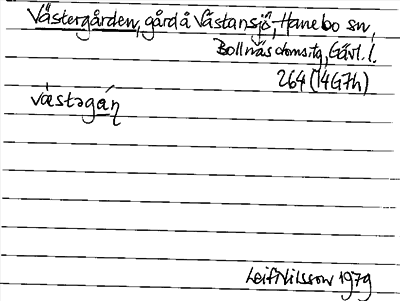 Västergården, gård å Västansjö, Hanebo sn,
Bollnäs domsitg, Gävl. l.
264 (14G7h)
västəgáɳ
Leif Nilsson 1979